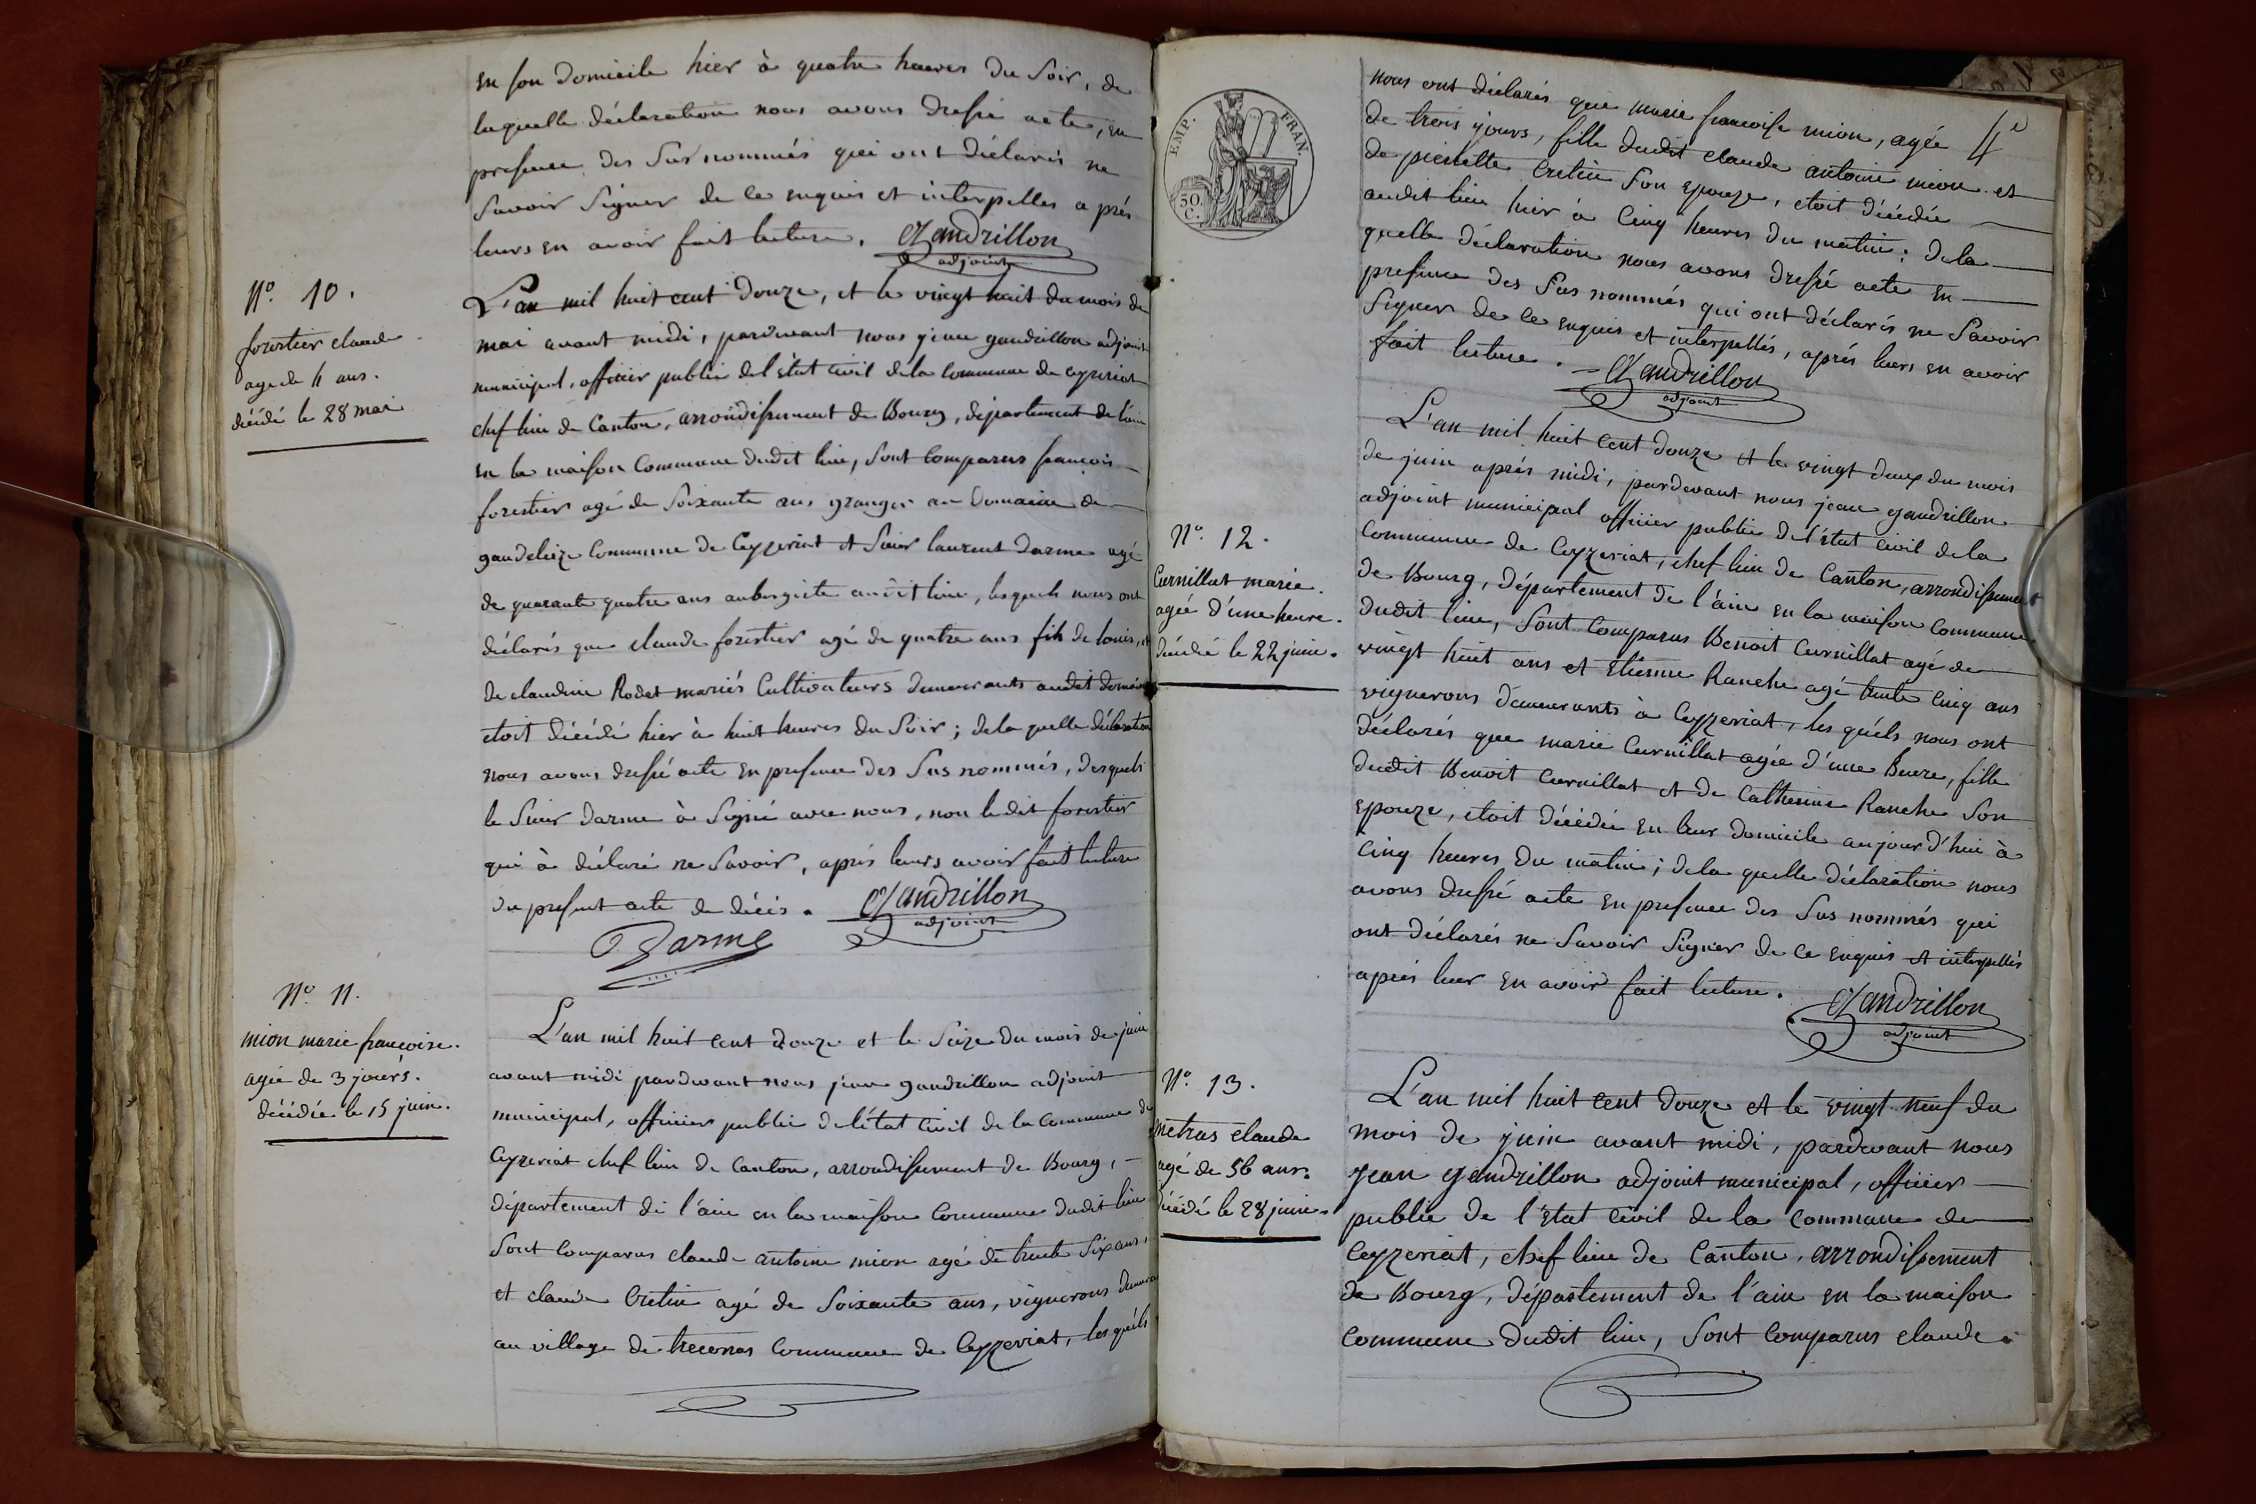 en son domicile hier à quatre heures du Soir, de
laquelle déclaration nous avons dressé acte, en
presence des Sus nommés qui ont déclarés ne
Savoir Signer de ce enquis et interpelles après
leurs en avoir fait lecture. Gandrillon
adjoint
N.o 10.
forestier claude
age de 4 ans.
décédé le 28 mai
L'an mil huit cent douze, et le vingt huit du mois de
mai avant midi, pardevant nous jean gandrillon adjoint
municipal, officier public de l'état civil de la commune de ceyzeriat
chef lieu de Canton, arrondissement de Bourg, département de l'ain
en la maison Commune dudit lieu, Sont Comparus françois
forestier agé de Soixante ans granger au Domaine de
Commune de Ceyzeriat et Sieur laurent darme agé
de quarante quatre ans aubergiste audit lieu, lesquels nous ont
déclarés que claude forestier agé de quatre ans fils de louis, et
de claudine Rodet mariés Cultivateurs demeurants audit domaine
etoit décédé hier à huit heures du Soir; de la quelle déclaration
nous avons dressé acte en presence des Sus nommés, desquels
le Sieur darme à Signé avec nous, non le dit forestier
qui à déclaré ne Savoir, après leurs avoir fait lecture
du present acte de décès. Gandrillon
adjoint
Darme
N.o 11.
mion marie françoise.
agée de 3 jours.
décédée le 15 juin.
L'an mil huit cent douze et le Seize du mois de juin
avant midi pardevant nous jean gandrillon adjoint
municipal, officier public de l'état civil de la commune de
Ceyzeriat chef lieu de Canton, arrondissement de Bourg,
département de l'ain en la maison Commune dudit lieu
Sont Comparus claude antoine mion agé de trente Six ans,
et claude Cretin agé de Soixante ans, vignerons
au village de treconnas Commune de Ceyzeriat, lesquels
EMP. FRAN.
50 C.
4e
nous ont déclarés que marie françoise mion, agée
de trois jours, fille dudit claude antoine mion et
de pierrette Cretin Son epouze, etoit décédée
audit lieu hier à Cinq heures du matin; de la
quelle déclaration nous avons dressé acte en
presence des Sus nommés qui ont déclarés ne Savoir
Signer de ce enquis et interpellés, après leurs en avoir
fait lecture. Gandrillon
adjoint
N.o 12.
Curnillat marie.
agée d'une heure.
décédée le 22 juin.
L'an mil huit cent douze et le vingt deux du mois
de juin après midi, pardevant nous jean gandrillon
adjoint municipal officier public de l'état civil de la
Commune de Ceyzeriat, chef lieu de Canton, arrondissement
de Bourg, département de l'ain en la maison Commune
dudit lieu, Sont Comparus Benoit Curnillat agé de
vingt huit ans et Etienne Ranche agé trente Cinq ans
vignerons demeurants à Ceyzeriat, les quels nous ont
déclarés que marie Curnillat agée d'une heure, fille
dudit Benoit Curnillat et de Catherine Ranche Son
epouze, etoit décédée en leur domicile aujourd'hui à
Cinq heures du matin; de la quelle déclaration nous
avons dressé acte en presence des Sus nommés qui
ont déclarés ne Savoir Signer de ce enquis et interpellés
après leur en avoir fait lecture. Gandrillon
adjoint
N.o 13.
metras claude
agé de 56 ans.
décédé le 28 juin.
L'an mil huit cent douze et le vingt neuf du
mois de juin avant midi, pardevant nous
jean gandrillon adjoint municipal, officier
public de l'etat civil de la commune de
Ceyzeriat, chef lieu de Canton, arrondissement
de Bourg, département de l'ain en la maison
commune dudit lieu, Sont Comparus claude